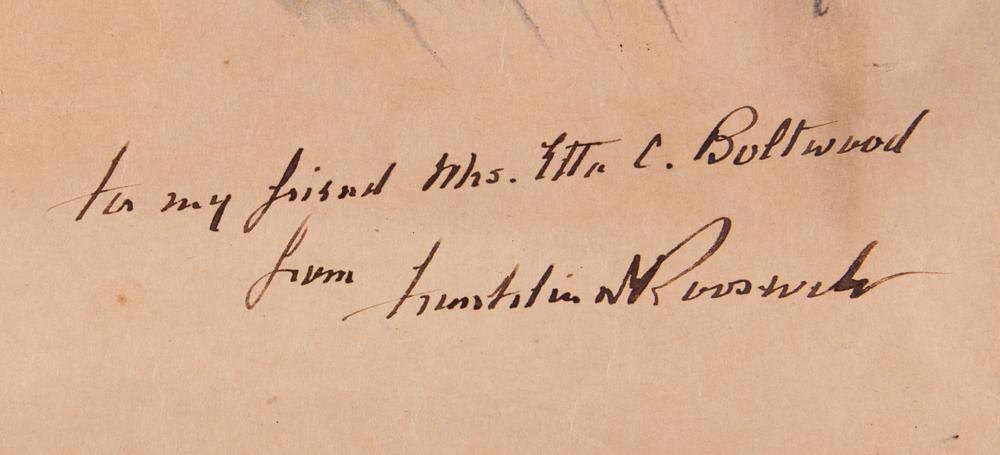 to my friend Mrs. Etta C. Boltwood
from Franklin D Roosevelt